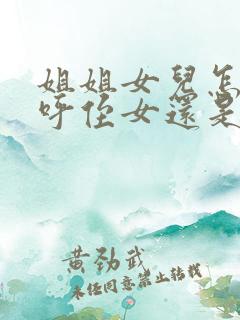 姐姐女兒怎
呼侄女還是
黃勁武
未經同意禁止轉載